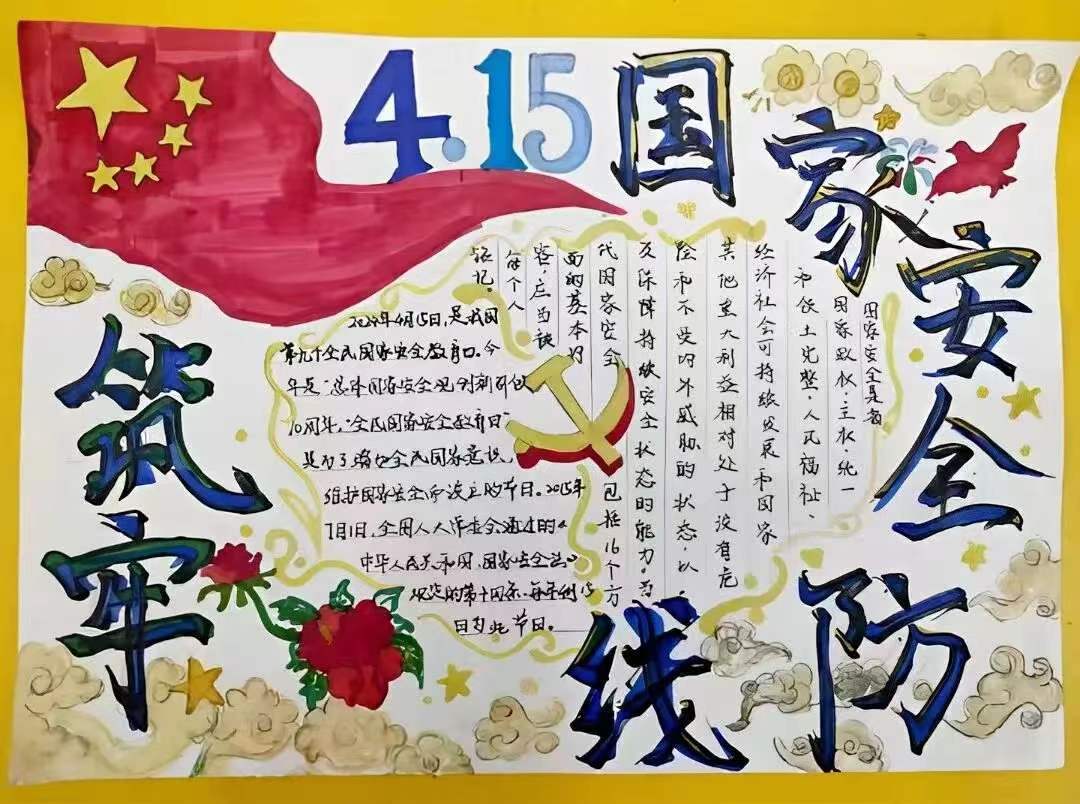 4.15
国家安全
筑牢
防线
国家安全是指
国家政权、主权、统一
和领土完整、人民福祉、
经济社会可持续发展和国家
其他重大利益相对处于没有危
险和不受内外威胁的状态,以
及保障持续安全状态的能力。当
代国家安全包括16个方
面的基本内
容,应当被
每个人
铭记。
2024年4月15日,是我国
第九个全民国家安全教育日。今
年是"总体国家安全观创新引领
10周年"。"全民国家安全教育日"
是为了增加全民国家意识,
维护国家安全而设立的节日。2015年
7月1日,全国人大常委会通过的《
中华人民共和国,国家安全法》
规定的第十四条,每年4月15
日为此节日。